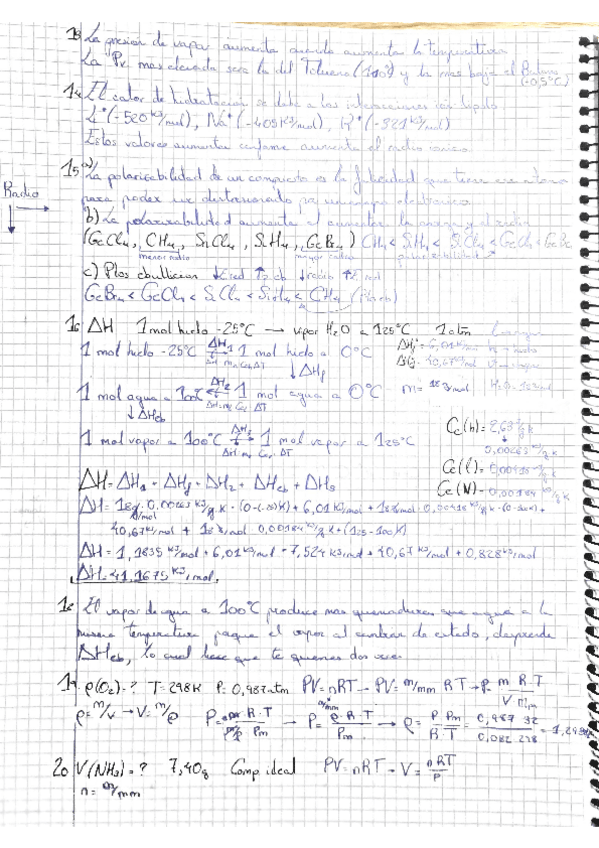 13 La presion de vapor aumenta cuando aumenta la temperatura
La Pv mas elevada sera la del Tolueno (110º) y la mas baja el Butano (-0,5ºC)
14 El calor de hidratación se debe a las interacciones ión
Li⁺(-520 kJ/mol), Na⁺(-405 kJ/mol), K⁺(-321 kJ/mol)
Estos valores aumentan conforme aumenta el radio ionico
15 a) La polarizabilidad de un compuesto es la facilidad que tiene
para poder ser distorsionado
Radio
b) La polarizabilidad aumenta al aumentar
(GeCl₄, CH₄, SiCl₄, SiH₄, GeBr₄) CH₄ < SiH₄ < SiCl₄ < GeCl₄ < GeBr
menor radio mayor radio polarizabilidad
c) Ptos ebullicion ↓
GeBr₄ < GeCl₄ < SiCl₄ < SiH₄ < CH₄
16 ΔH 1 mol hielo -25ºC → vapor H₂O a 125ºC 1 atm
1 mol hielo -25ºC ΔH₁ 1 mol hielo a 0ºC
↓ΔHf
1 mol agua a 100ºC ΔH₂ 1 mol agua a 0ºC m= 18 g/mol
↓ΔHeb
1 mol vapor a 100ºC ΔH₃ 1 mol vapor a 125ºC
Ce(h)= 2,63 J/g K
0,00263 kJ/g K
Ce(l)= 0,00418 kJ/g K
Ce(V)= 0,00184 kJ/g K
ΔH= ΔH₁ + ΔHf + ΔH₂ + ΔHeb + ΔH₃
ΔH= 18 g/mol · 0,00263 kJ/g K · (0-(-25)K) + 6,01 kJ/mol + 18 g/mol · 0,00418 kJ/g K · (0-100) +
40,67 kJ/mol + 18 g/mol 0,00184 kJ/g K · (125-100 K)
ΔH= 1,1835 kJ/mol + 6,01 kJ/mol - 7,524 kJ/mol + 40,67 kJ/mol + 0,828 kJ/mol
ΔH= 41,1675 kJ/mol.
18 El vapor de agua a 100ºC produce mas quemaduras que agua a la
misma temperatura, porque el vapor al cambiar de estado, desprende
ΔHeb, lo cual hace que te quemes dos veces
19 ρ(O₂)=? T=298K P=0,987atm PV=nRT → PV= m/mm RT → P= m R·T / V·mm
ρ= m/v → V= m/ρ P= m·R·T / m/ρ Pm → P= ρ·R·T / Pm → ρ= P Pm / R·T = 0,987 32 / 0,082 298
20 V(NH₃)=? 7,40g Comp ideal PV=nRT - V= nRT/P
n= m/mm